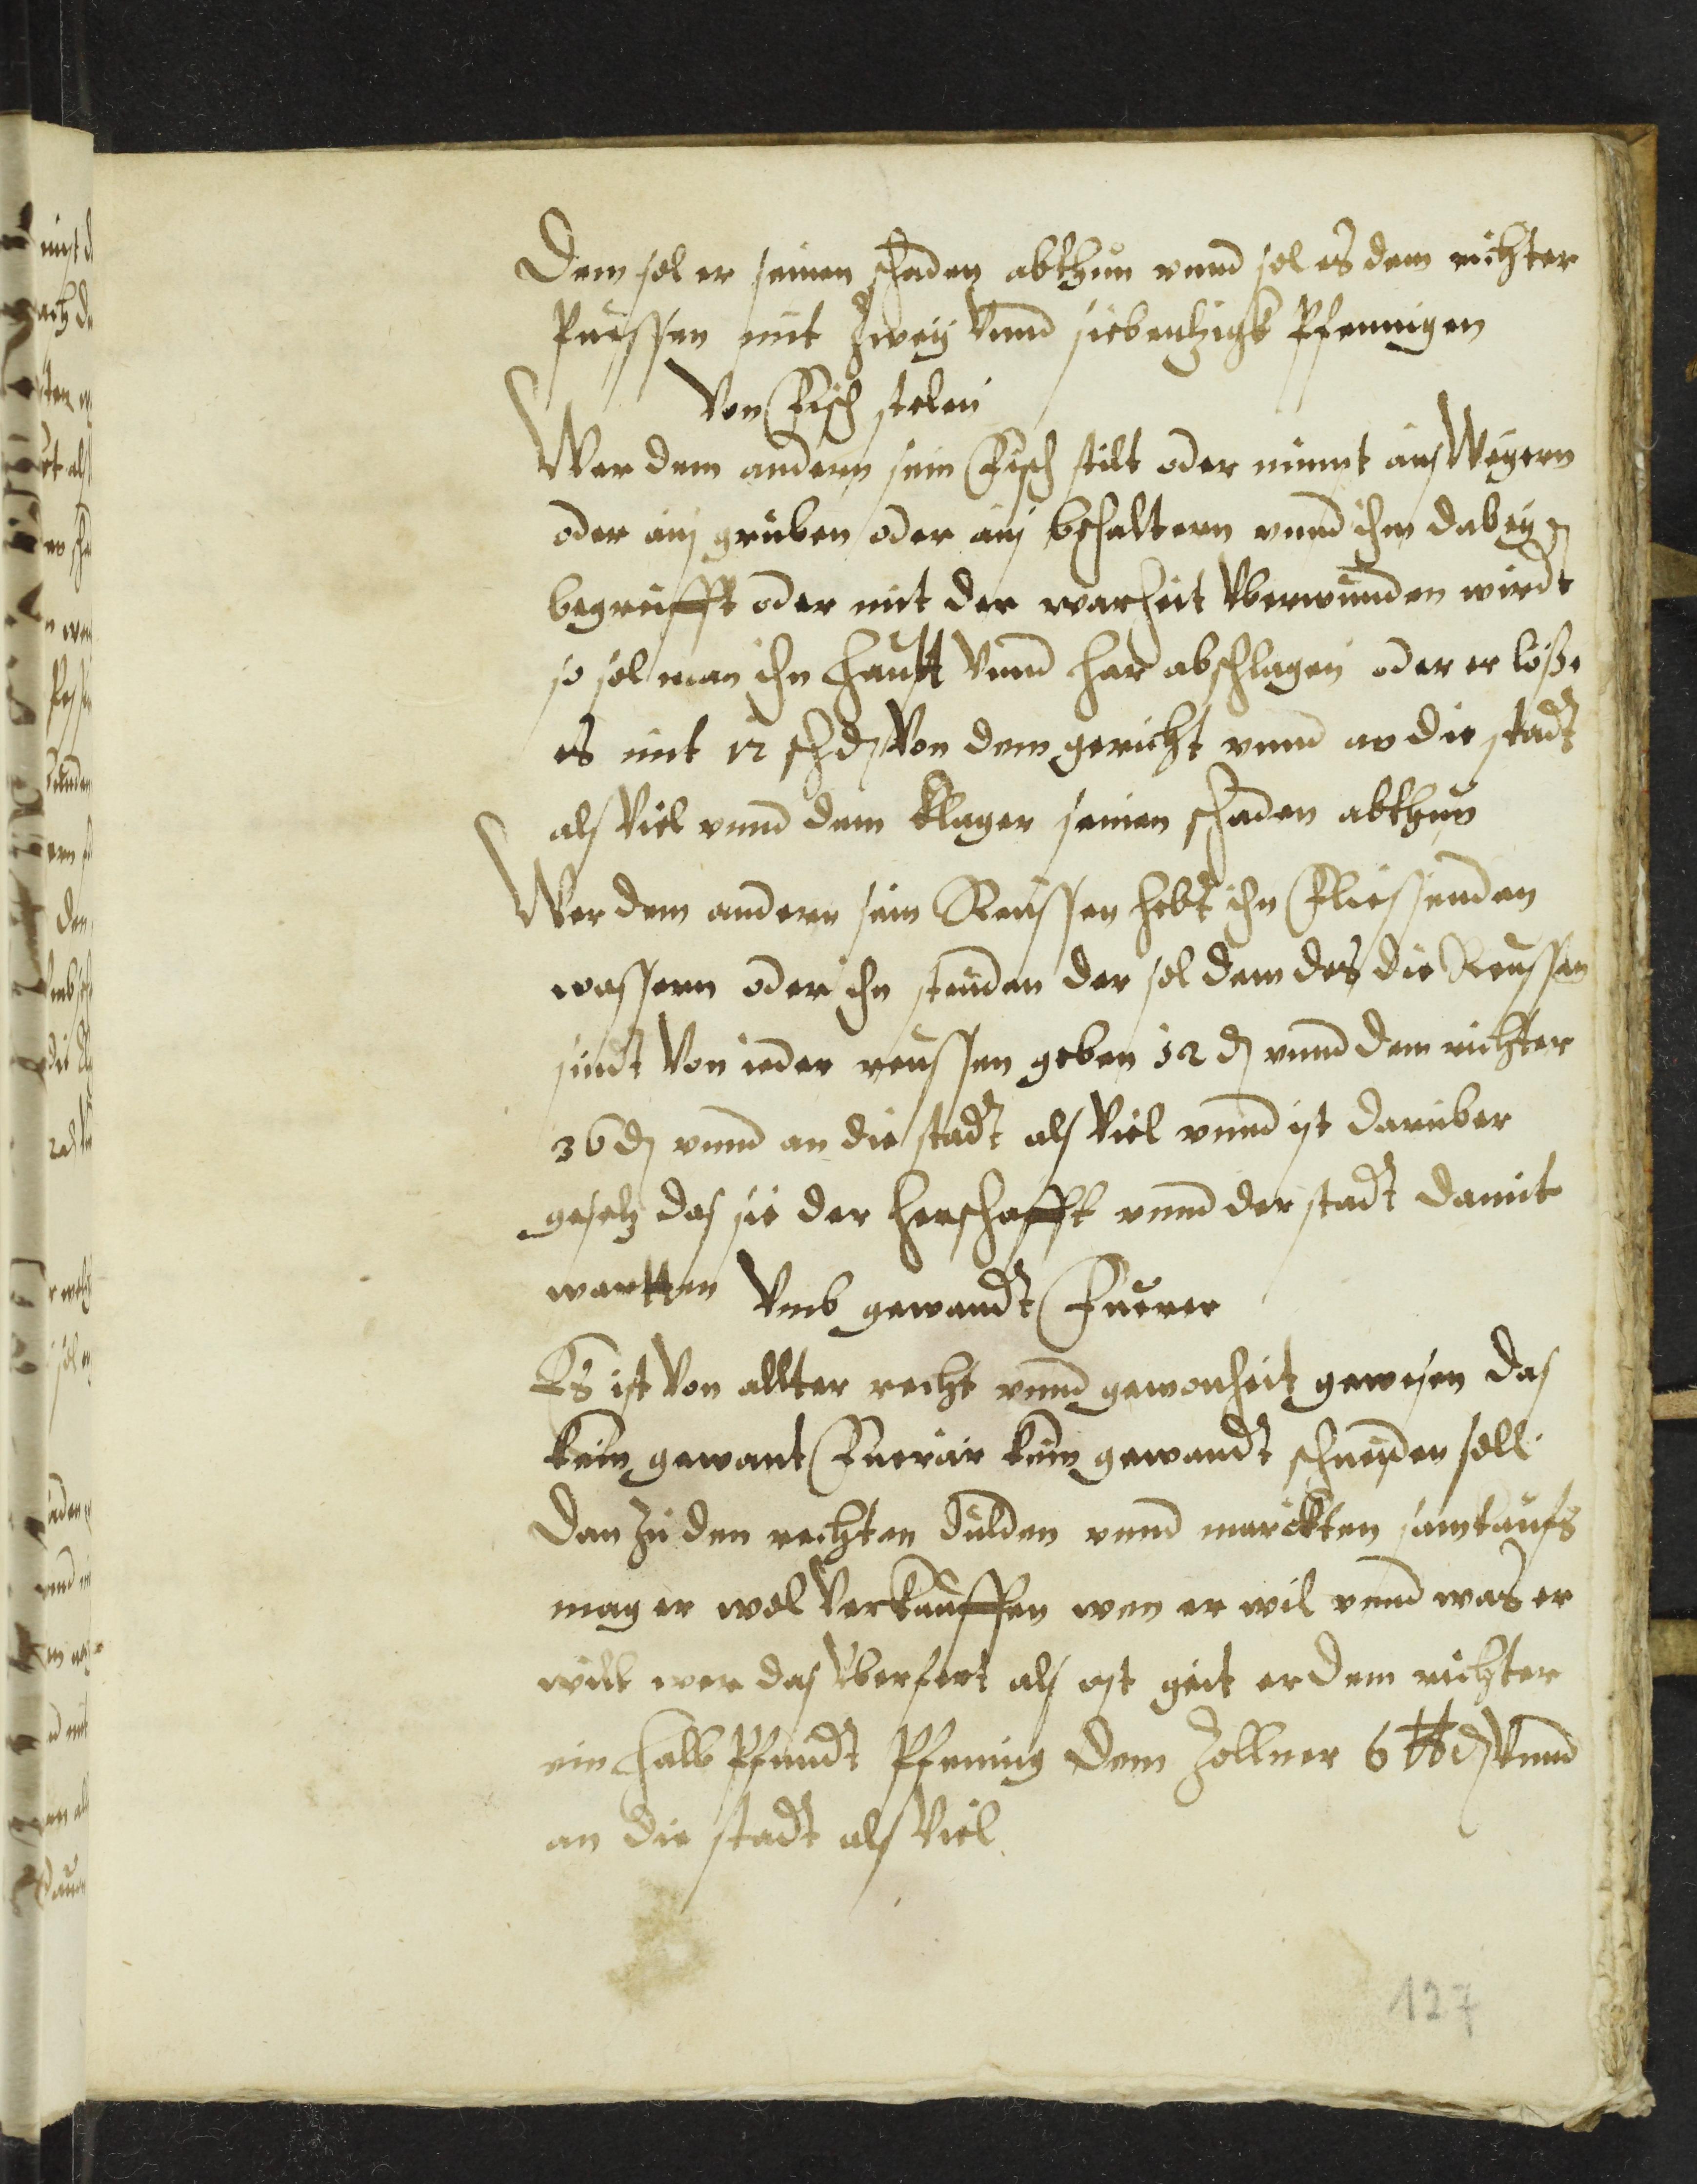 Dem sol er seinen schaden abthun vnnd sol es dem richter
Puessen mit Zwey Vnnd siebentzigk Pfennigen
Von Fisch stelen
Wer dem andern sein Fisch stilt oder nimmt aus Weyern
oder aus gruben oder aus bhaltern vnnd ihm dabey
begreifft oder mit der warheit Vberwunden wirdt
so sol man ihn Hautt Vnnd har abschlagen oder er löße
es mit 12 ß ₰ Von dem gericht vnnd an die stadt
als Viel vnnd dem klager seinen schaden abthun
Wer dem andern sein Reussen hebt ihn Fliessenden
wassern oder ihn steuden der sol dem des die Reussen
sindt Von ieder reussen geben 12 ₰ vnnd dem richter
36 ₰ vnnd an die stadt als Viel vnnd ist daruber
gesetz das sie der herschafft vnnd der stadt damit
wartten
Vmb gewandt Fuerer
Es ist Von allter recht vnnd gewonheit gewesen das
kein gewant Fuerer kein gewandt schneiden soll
Dan Zu den rechten dulden vnnd marckten samkaufs
mag er wol Verkauffen wem er wil vnnd was er
will wer das Vberfert als oft geit er dem richter
ein halb Pfundt Pfening dem Zollner 6 ℔ ₰ Vnnd
an die stadt als Viel.
127